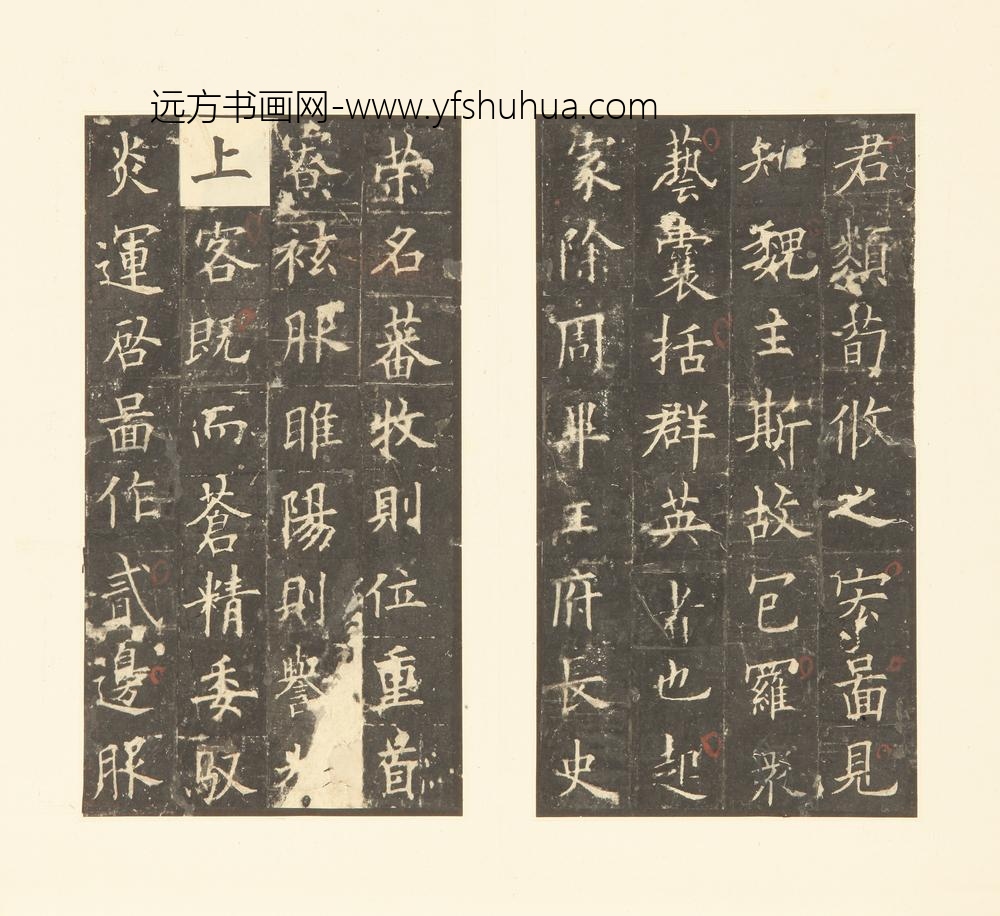 远方书画网-www.yfshuhua.com
君類荀攸之宏啚見
知魏主斯故包羅衆
藝囊括群英者也起
家除周王府長史
荣名蕃牧則位重昔
寮袨服睢陽則譽
上客既而蒼精委馭
炎運启啚作貳邊服